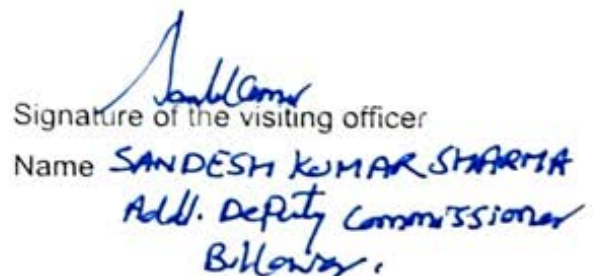 Signature of the visiting officer
Name SANDESH KUMAR SHARMA
Addl. Deputy Commissioner
Billawar.